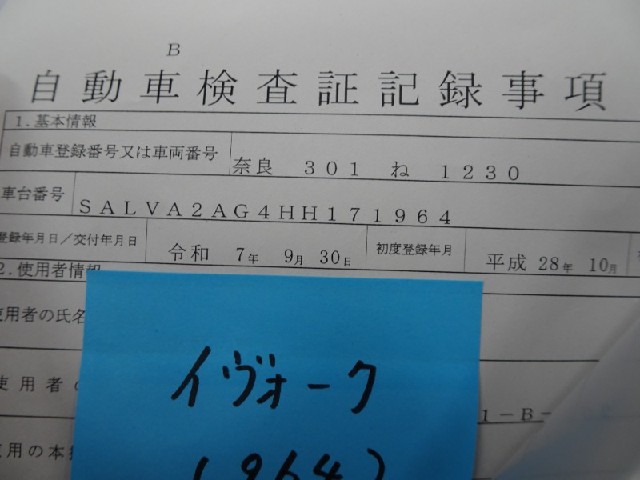 B
自動車検査証記録事項
1.基本情報
自動車登録番号又は車両番号 奈良 301 ね 1230
車台番号 SALVA2AG4HH171964
登録年月日/交付年月日 令和 7年 9月 30日 初度登録年月 平成 28年 10月
2.使用者情報
使用者の氏名
使用者の
1-B-
使用の本拠
イヴォーク
(964)